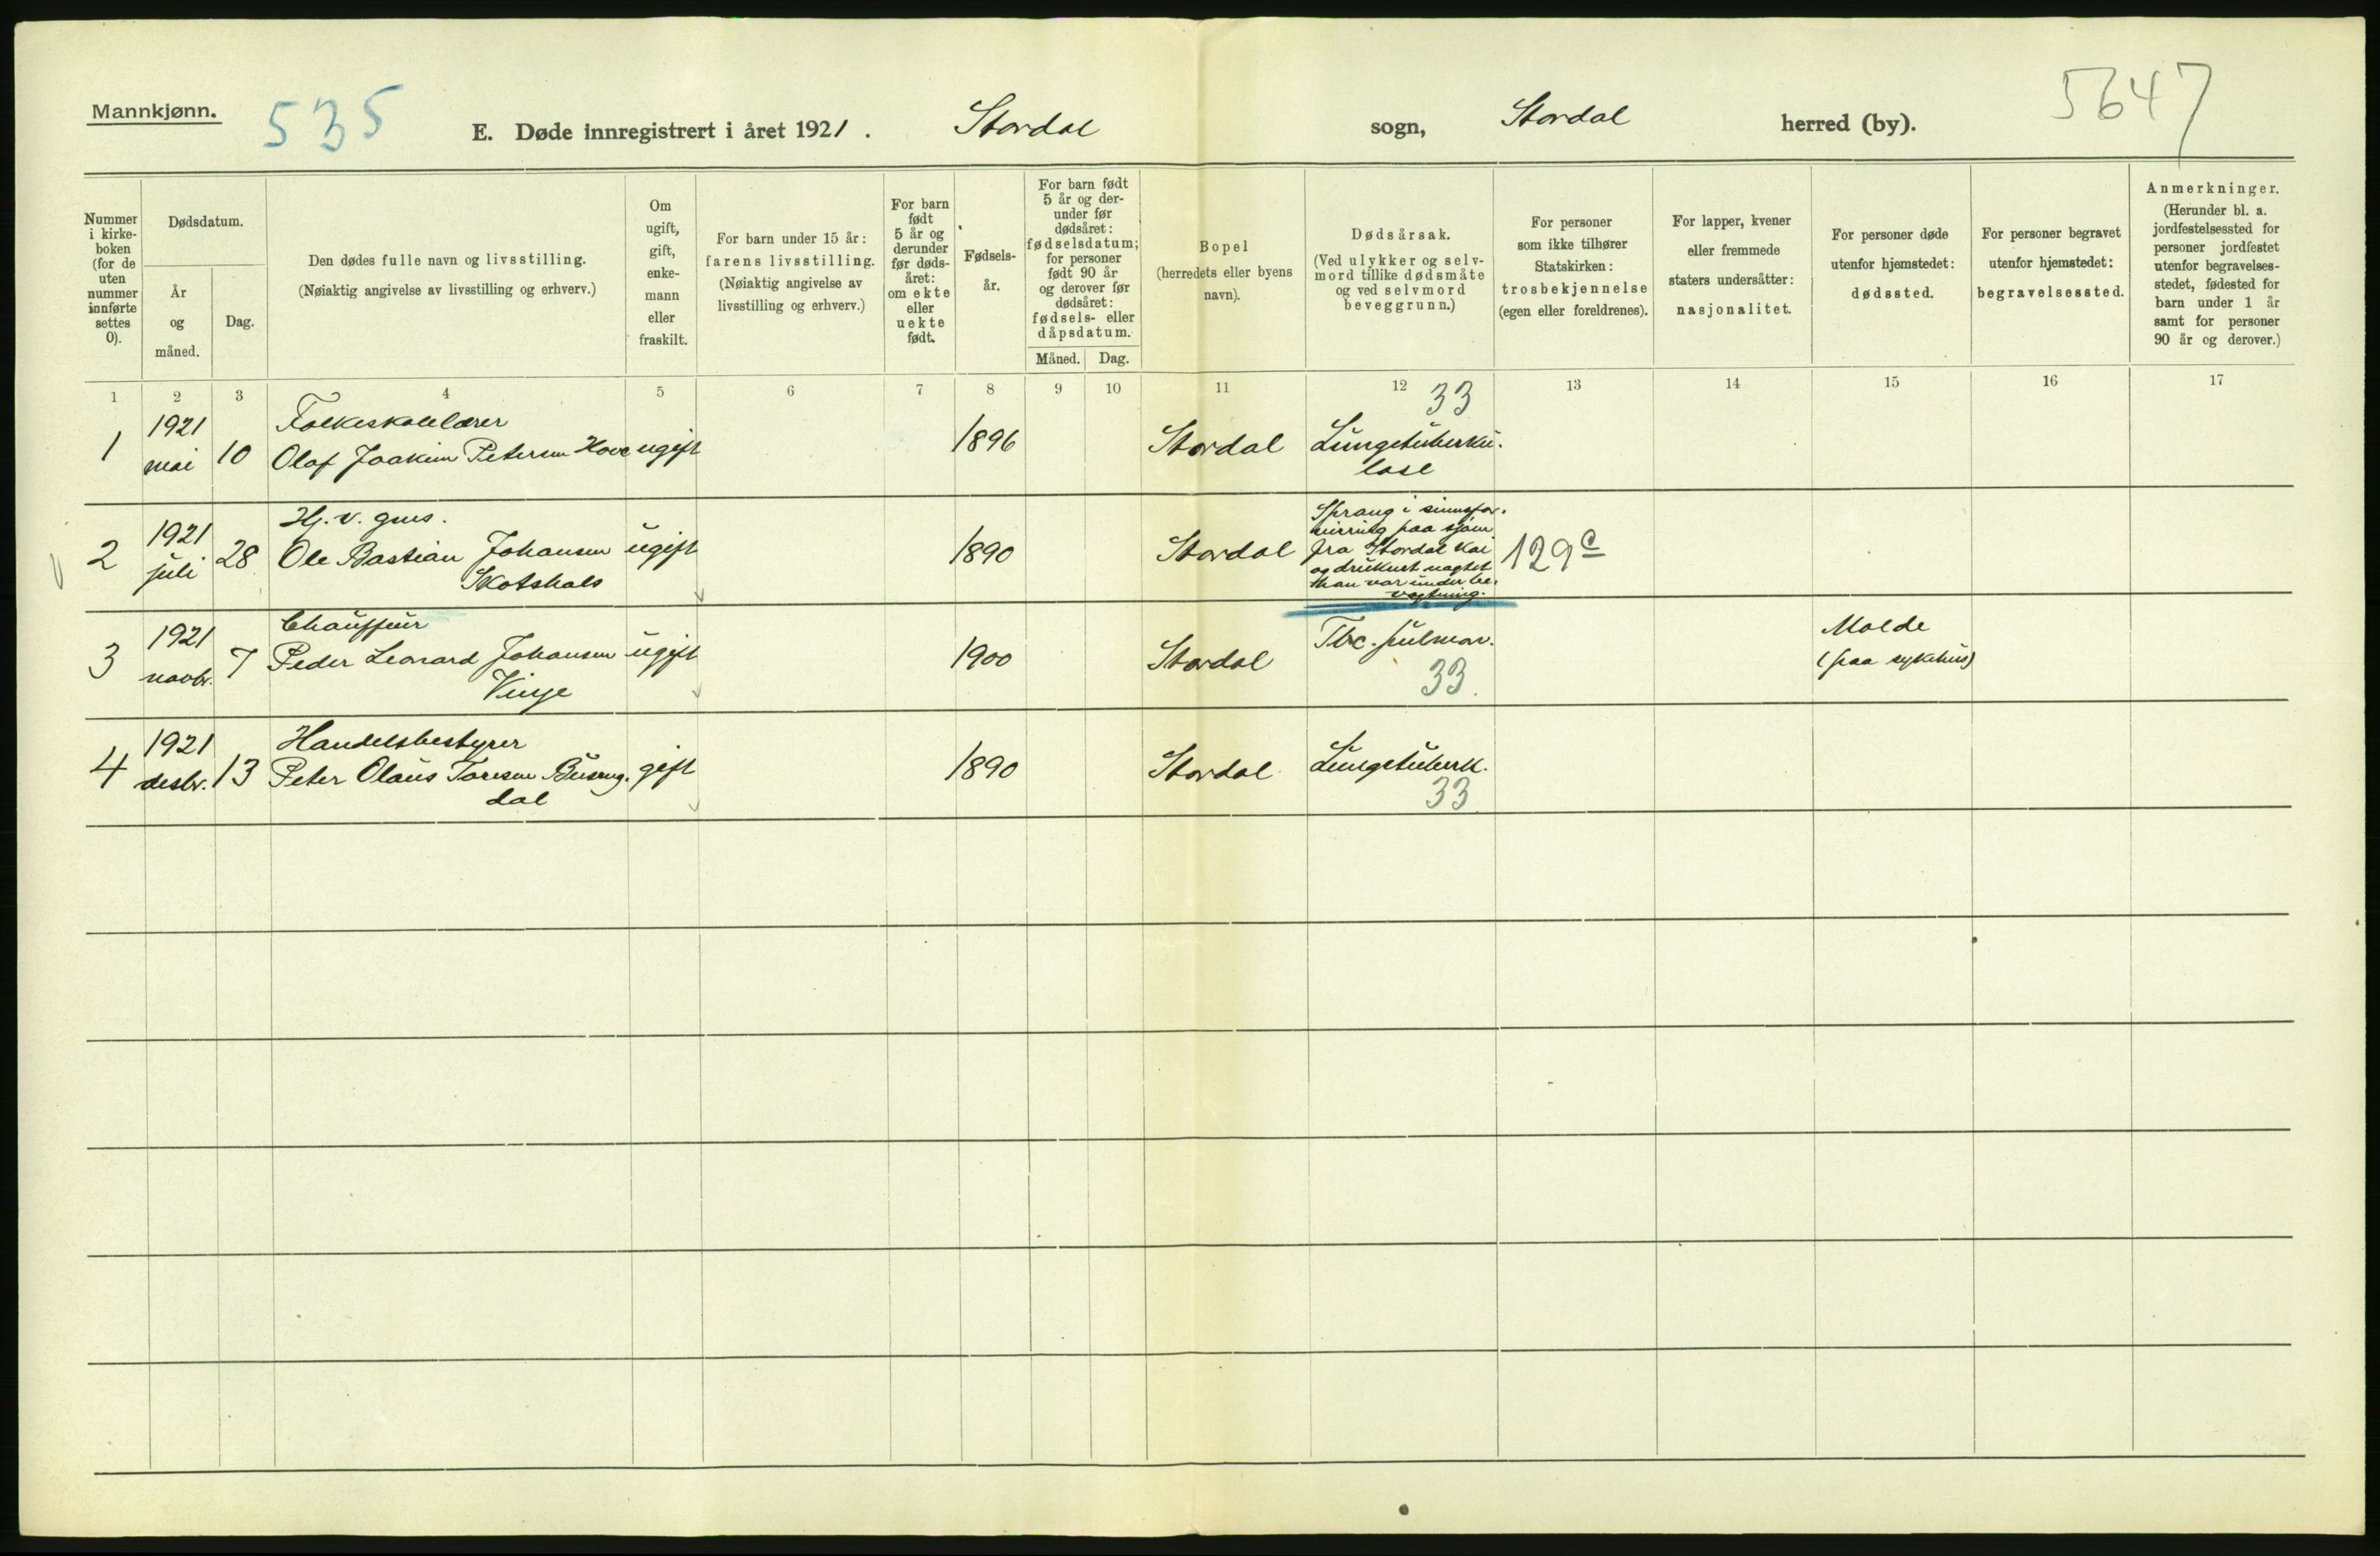 Mannkjønn.
535
E. Døde innregistrert i året 1921.
Stordal
sogn,
Stordal
herred (by).
5647
Nummer
i kirke-
boken
(for de
uten
nummer
innførte
settes
0).
Dødsdatum.
År
og
måned.
Dag.
Den dødes fulle navn og livsstilling.
(Nøiaktig angivelse av livsstilling og erhverv.)
Om
ugift,
gift,
enke-
mann
eller
fraskilt.
For barn under 15 år:
farens livsstilling.
(Nøiaktig angivelse av
livsstilling og erhverv.)
For barn
født
5 år og
derunder
før døds-
året:
om ekte
eller
uekte
født.
Fødsels-
år.
For barn født
5 år og der-
under før
dødsåret:
fødselsdatum;
for personer
født 90 år
og derover før
dødsåret:
fødsels- eller
dåpsdatum.
Måned.
Dag.
Bopel
(herredets eller byens
navn).
Dødsårsak.
(Ved ulykker og selv-
mord tillike dødsmåte
og ved selvmord
beveggrunn.)
For personer
som ikke tilhører
Statskirken:
trosbekjennelse
(egen eller foreldrenes).
For lapper, kvener
eller fremmede
staters undersåtter:
nasjonalitet.
For personer døde
utenfor hjemstedet:
dødssted.
For personer begravet
utenfor hjemstedet:
begravelsessted.
Anmerkninger.
(Herunder bl. a.
jordfestelsessted for
personer jordfestet
utenfor begravelses-
stedet, fødested for
barn under 1 år
samt for personer
90 år og derover.)
1 2 3 4 5 6 7 8 9 10 11 12 13 14 15 16 17
33
1
1921
mai
10
Folkeskolelærer
Olaf Joakim Petersen Hove
ugift
1896
Stordal
Lungetuberku-
lose
2
1921
juli
28
Hj. v. grus.
Ole Bastian Johansen
Skotshals
ugift
1890
Stordal
Sprang i sinnsfor-
virring paa sjøen
fra Stordal kai
og druknet uagtet
han var under be-
vogtning.
129c
3
1921
novbr.
7
Chauffeur
Peder Leonard Johansen
Vinje
ugift
1900
Stordal
Tbc. pulmon.
33.
Molde
(paa sykehus)
4
1921
desbr.
13
Handelsbestyrer
Peter Olaus Toresen Buseng-
dal
gift
1890
Stordal
Lungetuberk.
33